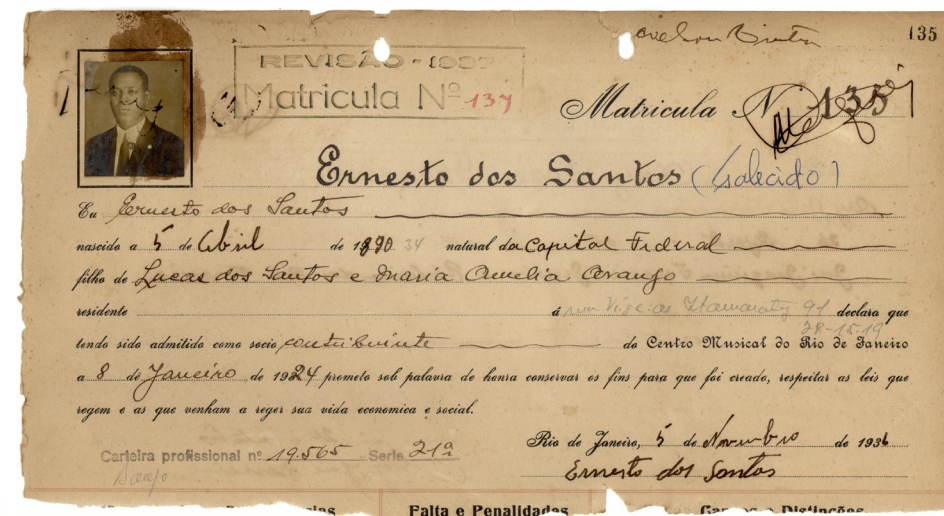 135
REVISÃO - 1937
Matricula Nº 137
Matricula N 135
Ernesto dos Santos (falecido)
Eu Ernesto dos Santos
nascido a 5 de Abril de 1890 34 natural da Capital Federal
filho de Lucas dos Santos e Maria Amelia Araujo
residente á rua Itamaraty 91 declara que
28-15-19
tendo sido admitido como socio contribuinte do Centro Musical do Rio de Janeiro
a 8 de Janeiro de 1924 prometo sob palavra de honra conservar os fins para que foi creado, respeitar as leis que
regem e as que venham a reger sua vida economica e social.
Rio de Janeiro, 5 de Novembro de 1936
Carteira profissional nº 19.565 Serie 21ª
Ernesto dos Santos
Falta e Penalidades
Cargos e Distincções